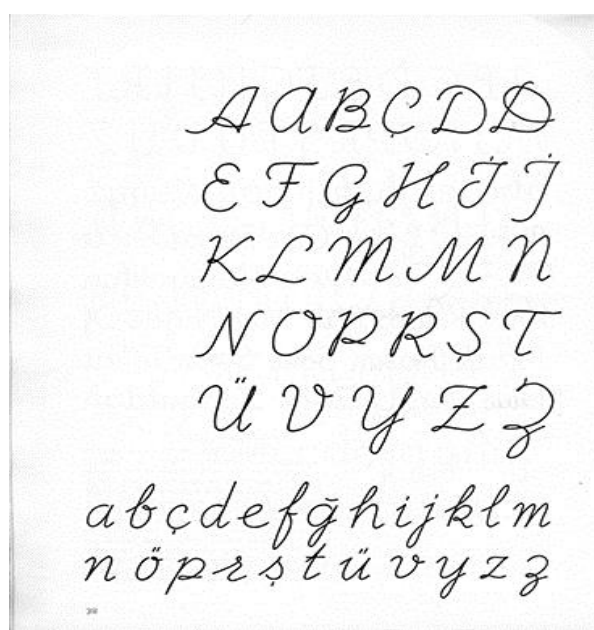 A a B Ç D D
E F G H İ İ
K L M M N
N O P R Ş T
Ü V Y Z Z
a b ç d e f ğ h i j k l m
n ö p r ş t ü v y z z